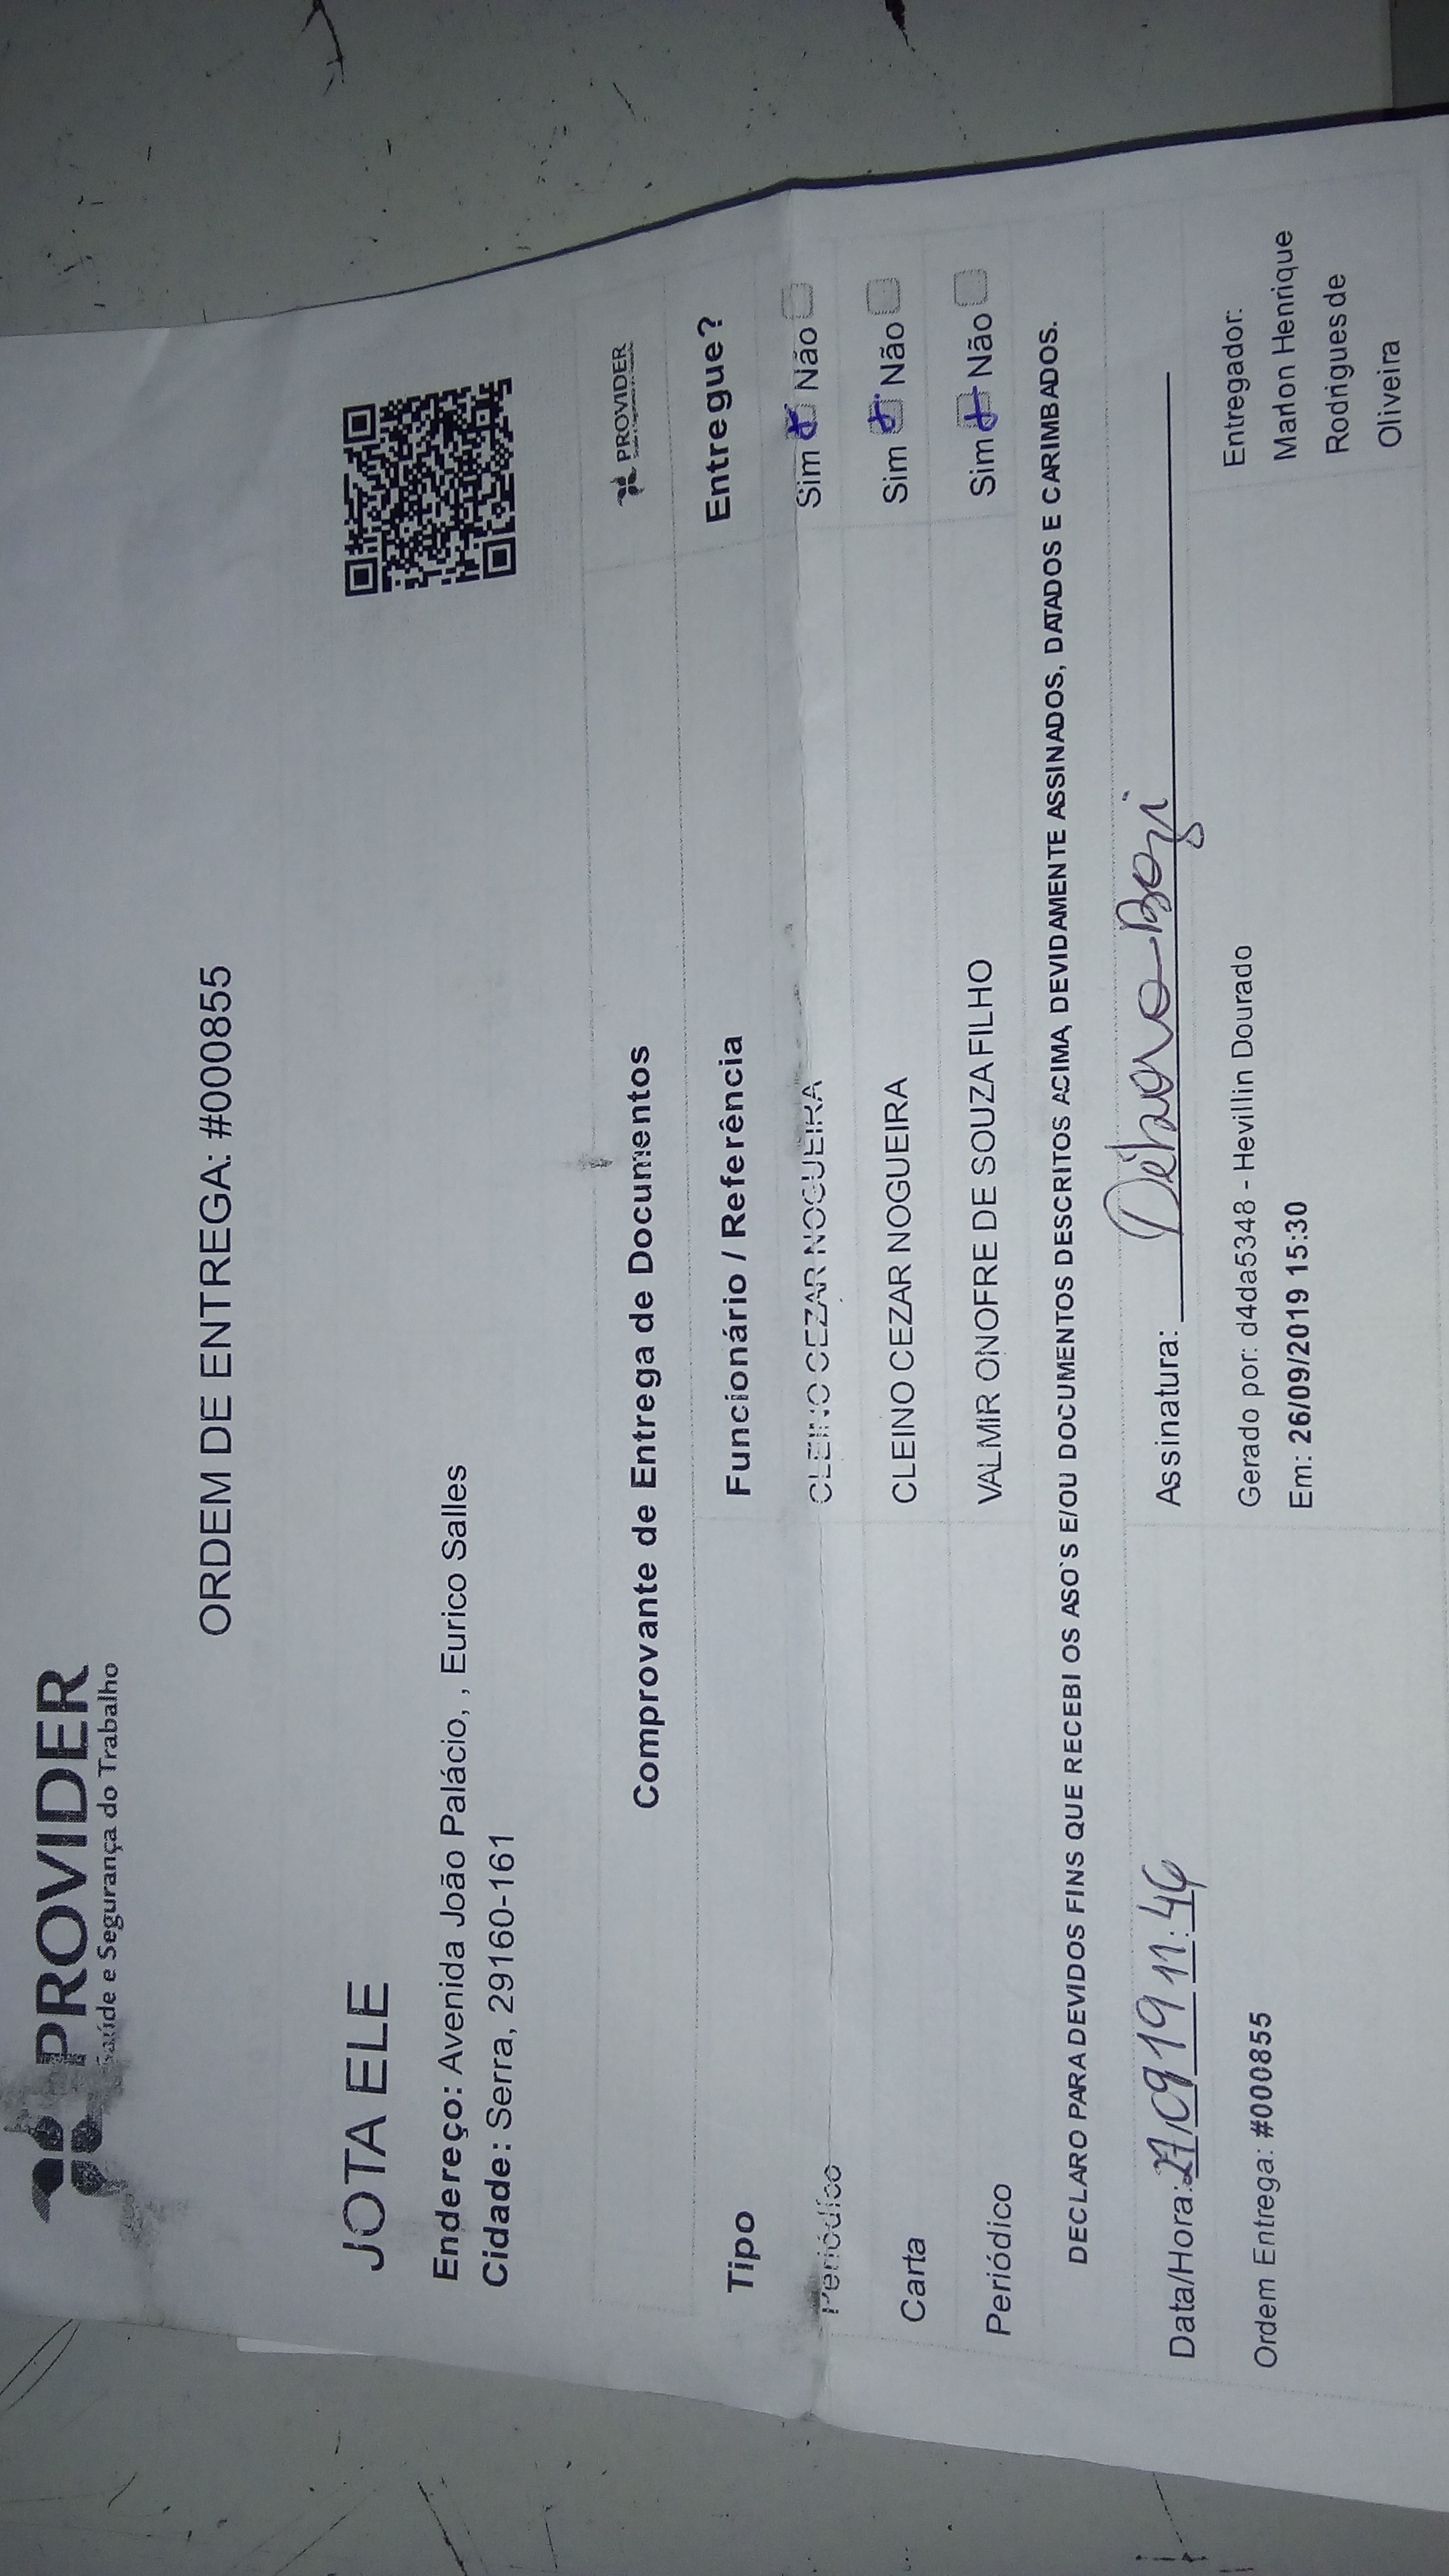 PROVIDER
Saúde e Segurança do Trabalho
ORDEM DE ENTREGA: #000855
JOTA ELE
Endereço: Avenida João Palácio, , Eurico Salles
Cidade: Serra, 29160-161
Comprovante de Entrega de Documentos
PROVIDER
Tipo Funcionário / Referência Entregue?
Periódico CLEINO CEZAR NOGUEIRA Sim Não
Carta CLEINO CEZAR NOGUEIRA Sim Não
Periódico VALMIR ONOFRE DE SOUZA FILHO Sim Não
DECLARO PARA DEVIDOS FINS QUE RECEBI OS ASO`S E/OU DOCUMENTOS DESCRITOS ACIMA, DEVIDAMENTE ASSINADOS, DATADOS E CARIMBADOS.
Data/Hora: 27/09/19 11:44 Assinatura:
Ordem Entrega: #000855
Gerado por: d4da5348 - Hevillin Dourado
Em: 26/09/2019 15:30
Entregador:
Marlon Henrique
Rodrigues de
Oliveira